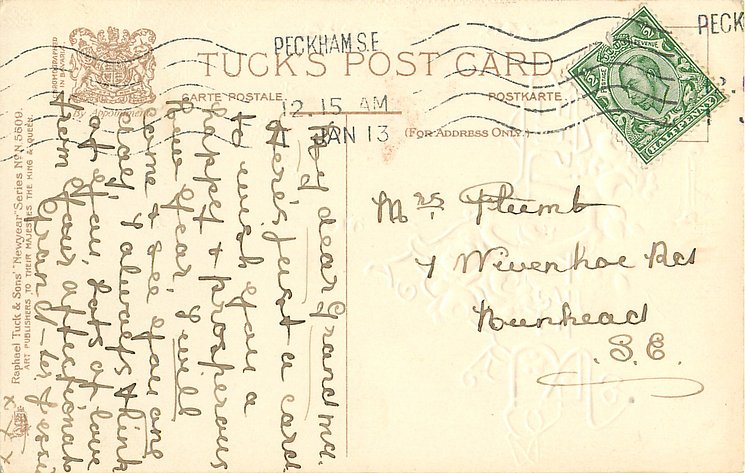 PECKHAM S.E
PECK
TUCK'S POST CARD
CARTE POSTALE
POSTKARTE
12.15 AM
1 JAN 13
(FOR ADDRESS ONLY.)
By Appointment
CHROMOGRAPHED
IN BAVARIA
POSTAGE
REVENUE
HALFPENNY
Raphael Tuck & Sons' "Newyear" Series No N 5609.
ART PUBLISHERS TO THEIR MAJESTIES THE KING & QUEEN.
My dear Grandma.
Here's just a card
to wish you a
happy & prosperous
New Year, I will
come & see you one
day, I always think
of you, Lots of love
from your affectionate
Grand-ter Jessi
x x x
Mrs. Plumb
7 Wivenhoe Rd
Nunhead
S.E.